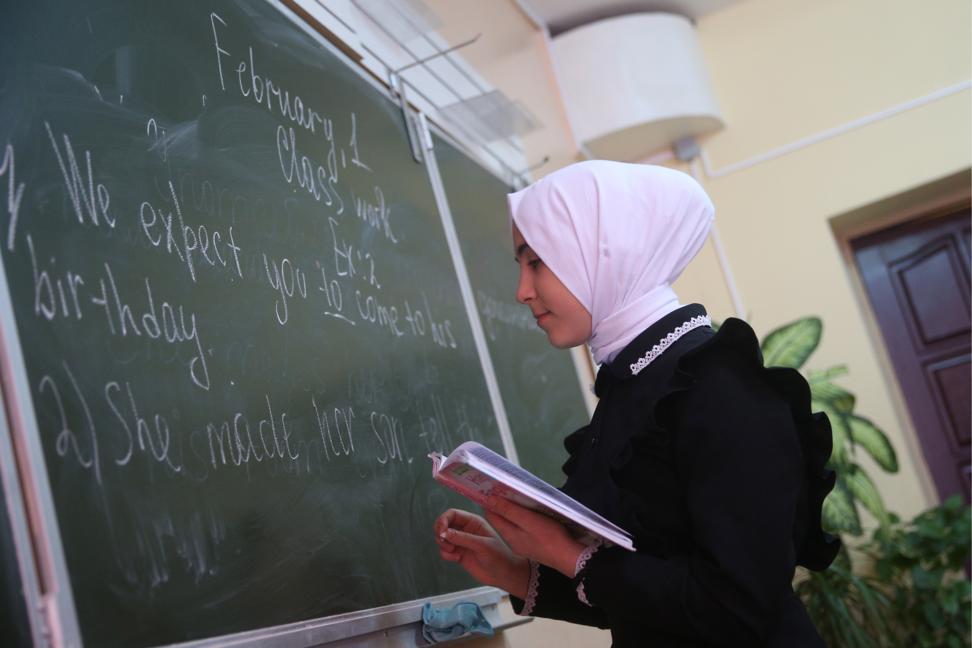 February, 1
Class work
Ex: 2
1) We expect you to come to his
birthday.
2) She made her son tell the